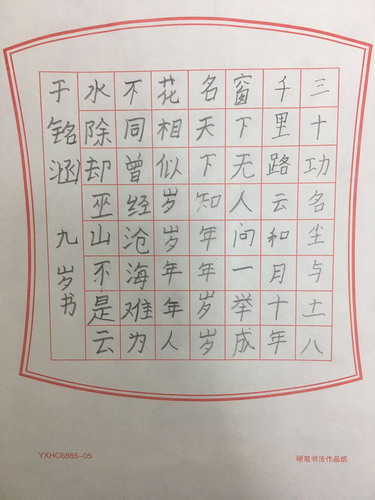 三十功名尘与土八
千里路云和月十年
窗下无人问一举成
名天下知年年岁岁
花相似岁岁年年人
不同曾经沧海难为
水除却巫山不是云
于铭涵 九岁书
YXHC6865-05
硬笔书法作品纸